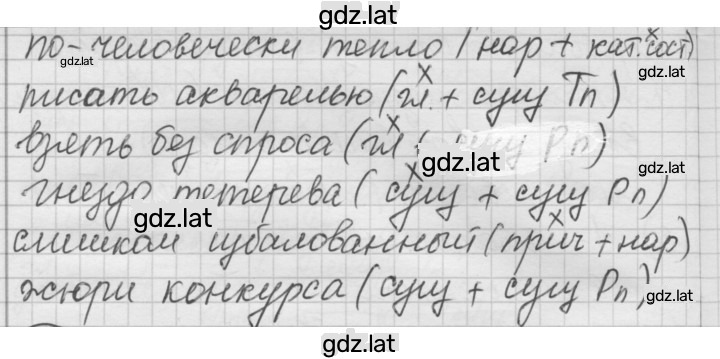 gdz.lat
по-человечески тепло (нар + кат. сост)
gdz.lat
писать акварелью (гл. + сущ Тп)
взять без спроса (гл + сущ Рп)
gdz.lat
гнездо тетерева (сущ + сущ Рп)
gdz.lat
слишком избалованный (прич + нар)
жюри конкурса (сущ + сущ Рп)
gdz.lat
gdz.lat
gdz.lat
gdz.lat